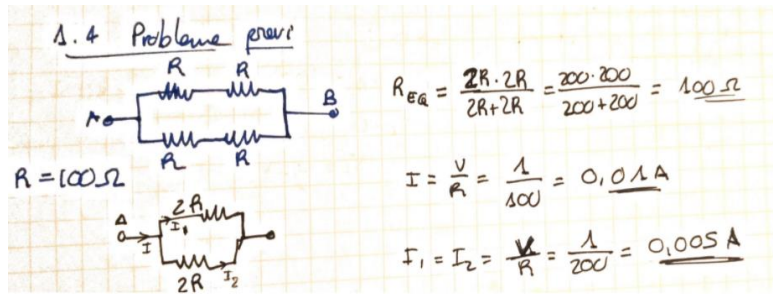 1.4 Problema previ
R R
A B
R R
R = 100 Ω
A 2R
I I₁
2R I₂
R EQ = 2R · 2R / 2R + 2R = 200 · 200 / 200 + 200 = 100 Ω
I = V / R = 1 / 100 = 0,01 A
I₁ = I₂ = V / R = 1 / 200 = 0,005 A